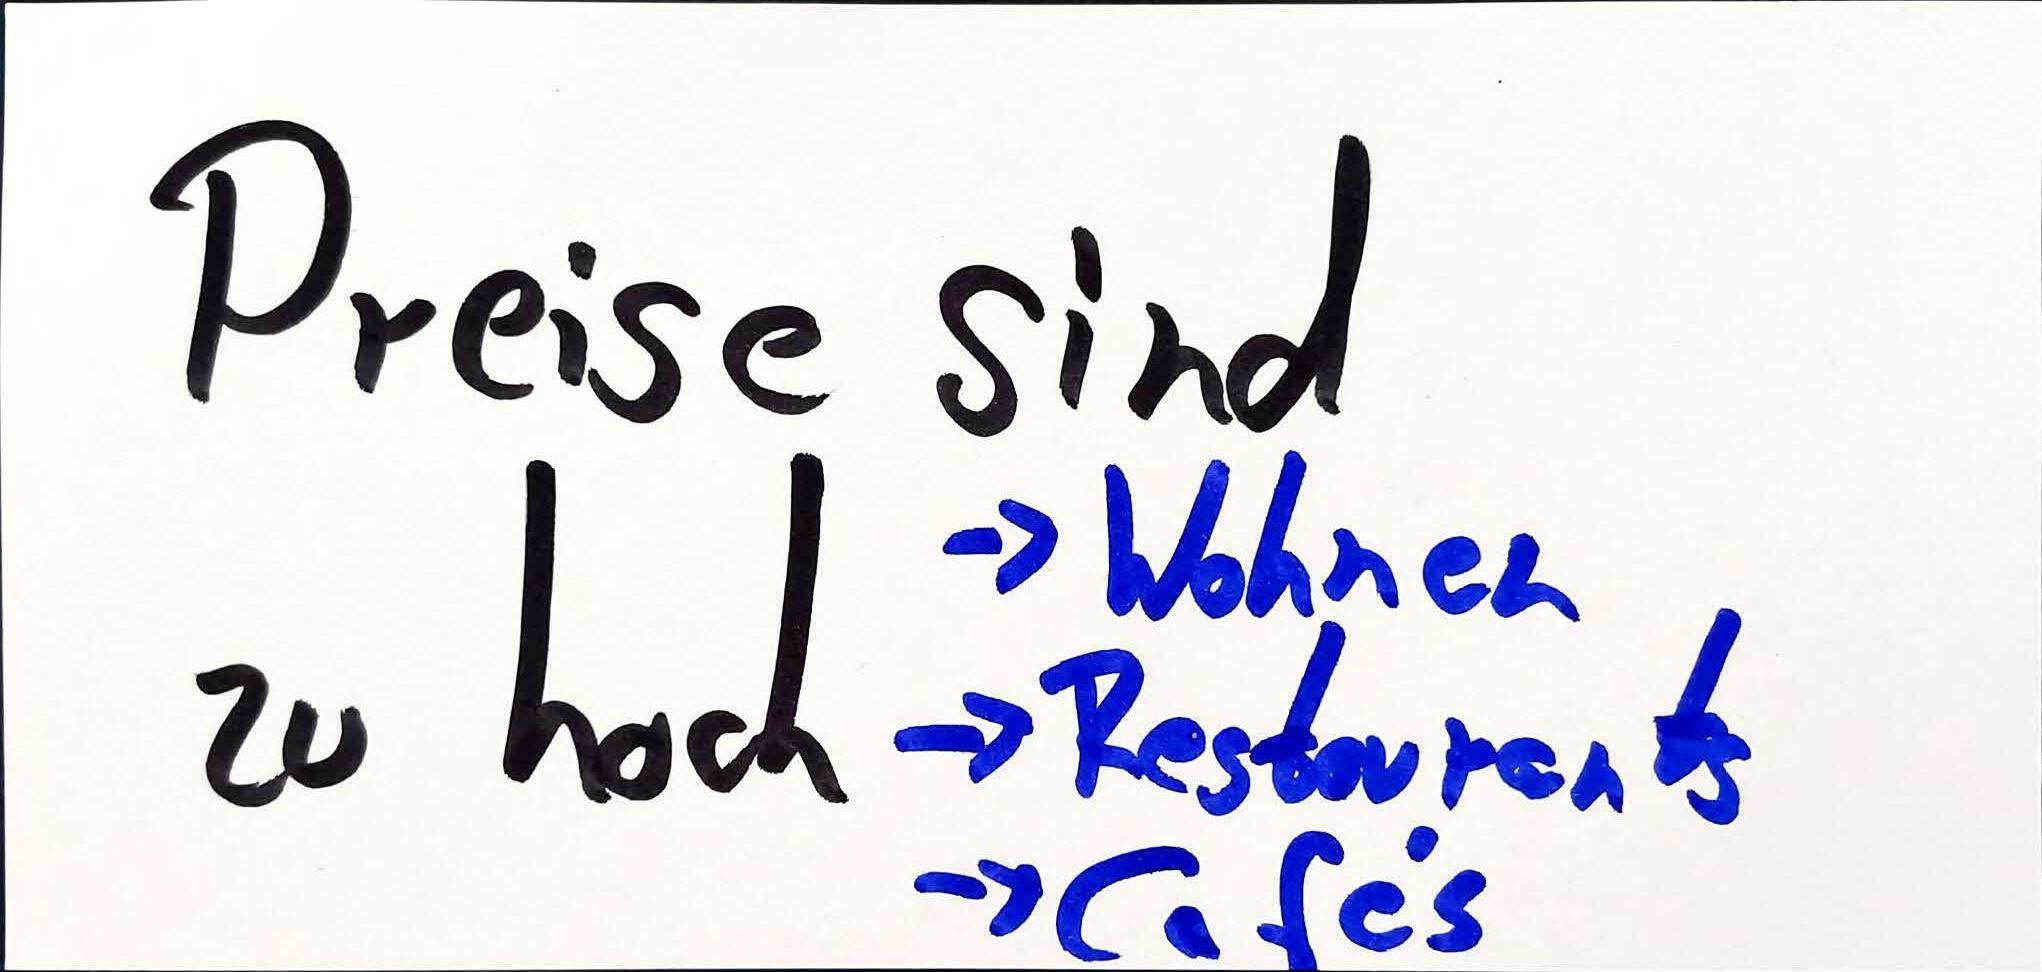 Preise sind
zu hoch
-> Wohnen
-> Restaurants
-> Cafés